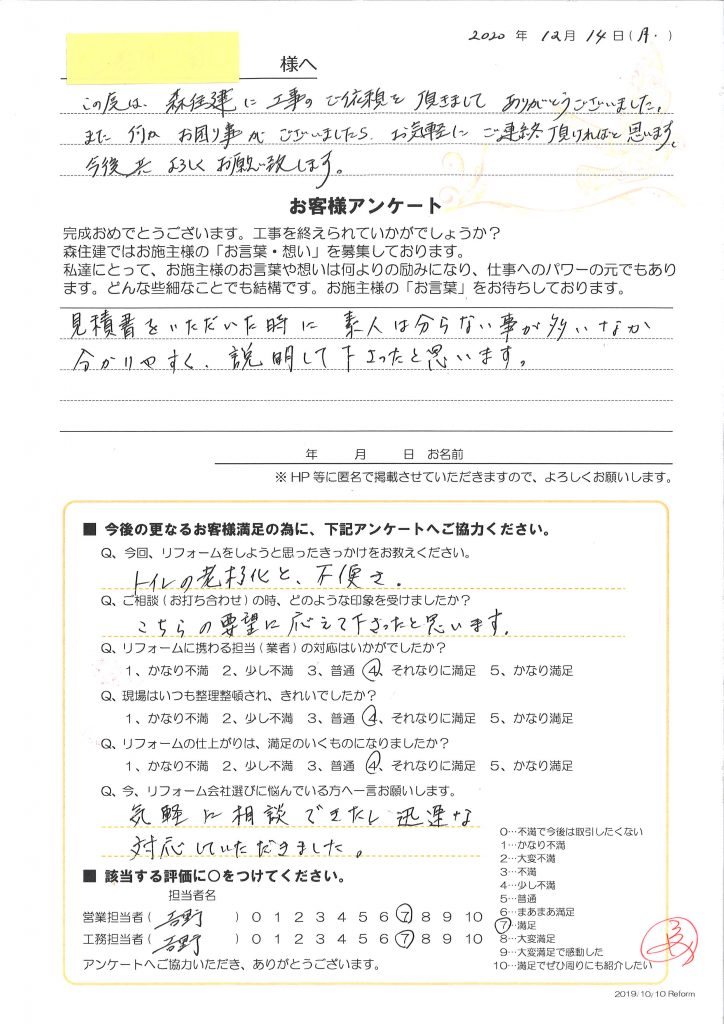 2020 年 12月 14日(月・)
様へ
この度は、森住建に工事のご依頼を頂きまして ありがとうございました。
また 何か お困り事が ございましたら、お気軽に ご連絡 頂ければと思います。
今後共 よろしく お願い致します。
お客様アンケート
完成おめでとうございます。工事を終えられていかがでしょうか?
森住建ではお施主様の「お言葉・想い」を募集しております。
私達にとって、お施主様のお言葉や想いは何よりの励みになり、仕事へのパワーの元でもあり
ます。どんな些細なことでも結構です。お施主様の「お言葉」をお待ちしております。
見積書をいただいた時に 素人は分らない事が多いなか
分かりやすく、説明して下さったと思います。
年 月 日 お名前
※HP等に匿名で掲載させていただきますので、よろしくお願いします。
■ 今後の更なるお客様満足の為に、下記アンケートへご協力ください。
Q、今回、リフォームをしようと思ったきっかけをお教えください。
トイレの老朽化と、不便さ。
Q、ご相談(お打ち合わせ)の時、どのような印象を受けましたか?
こちらの要望に応えて下さったと思います。
Q、リフォームに携わる担当(業者)の対応はいかがでしたか?
1、かなり不満 2、少し不満 3、普通 4、それなりに満足 5、かなり満足
Q、現場はいつも整理整頓され、きれいでしたか?
1、かなり不満 2、少し不満 3、普通 4、それなりに満足 5、かなり満足
Q、リフォームの仕上がりは、満足のいくものになりましたか?
1、かなり不満 2、少し不満 3、普通 4、それなりに満足 5、かなり満足
Q、今、リフォーム会社選びに悩んでいる方へ一言お願いします。
気軽に相談できたし迅速な
対応していただきました。
■ 該当する評価に○をつけてください。
担当者名
営業担当者( 吉野 ) 0 1 2 3 4 5 6 7 8 9 10
工務担当者( 吉野 ) 0 1 2 3 4 5 6 7 8 9 10
アンケートへご協力いただき、ありがとうございます。
0…不満で今後は取引したくない
1…かなり不満
2…大変不満
3…不満
4…少し不満
5…普通
6…まあまあ満足
7…満足
8…大変満足
9…大変満足で感動した
10…満足でぜひ周りにも紹介したい
2019/10/10 Reform